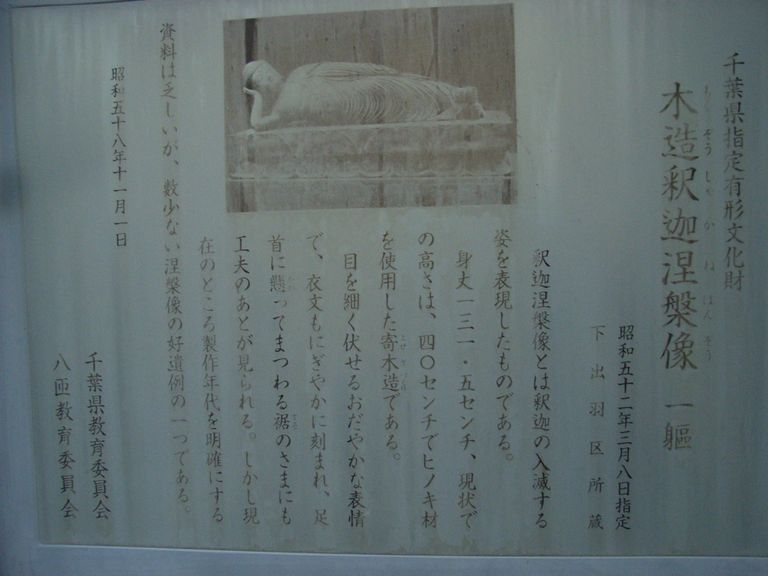 千葉県指定有形文化財
木造釈迦涅槃像 一軀
もくぞうしゃかねはんぞう
昭和五十二年三月八日指定
下出羽区所蔵
釈迦涅槃像とは釈迦の入滅する
姿を表現したものである。
身丈一三一・五センチ、現状で
の高さは、四〇センチでヒノキ材
を使用した寄木造である。
目を細く伏せるおだやかな表情
で、衣文もにぎやかに刻まれ、足
首に懸ってまつわる裾のさまにも
工夫のあとが見られる。しかし現
在のところ製作年代を明確にする
資料は乏しいが、数少ない涅槃像の好遺例の一つである。
昭和五十八年十一月一日
千葉県教育委員会
八匝教育委員会